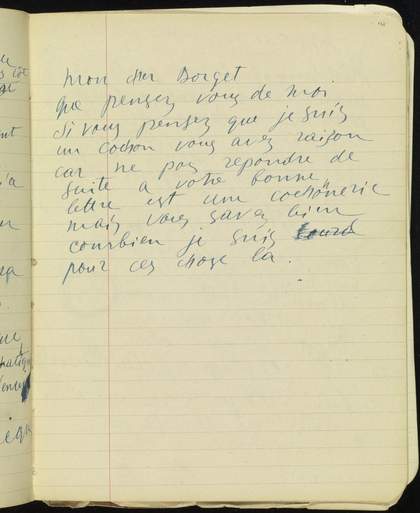 mon cher Dorget
que pensez vous de moi
si vous pensez que je suis
un cochon vous avez raison
car ne pas repondre de
suite a votre bonne
lettre est une cochonerie
mais vous savez bien
courbien je suis lourd
pour ces chose la.